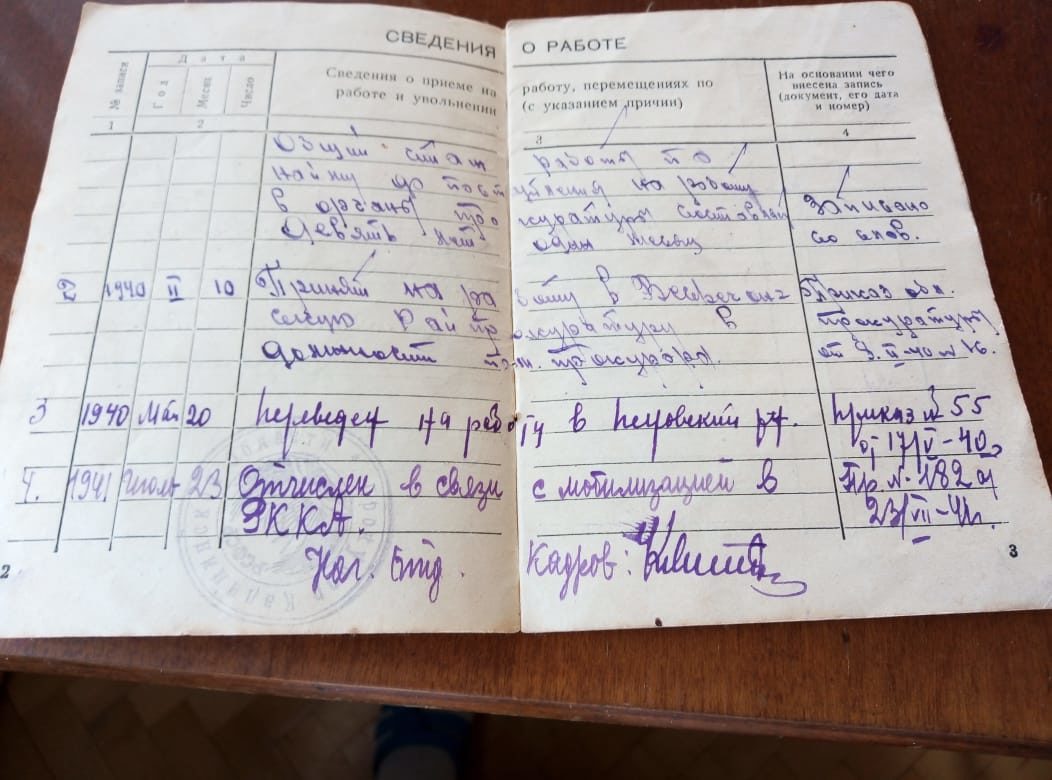 СВЕДЕНИЯ О РАБОТЕ
№ записи
Дата
Год
Месяц
Число
Сведения о приеме на работу, перемещениях по
работе и увольнении (с указанием причин)
На основании чего
внесена запись
(документ, его дата
и номер)
1 2 3 4
Общий стаж работы по
найму до поступления на работу
в органы прокуратуры составляет Записано
девять лет один месяц со слов.
2 1940 II 10 Принят на ра боту в Приказ обл.
скую рай пр окуратуру в прокуратуры
должность прокурора. от II-40
3 1940 Май 20 Переведен на рабо ту в р-н. Приказ № 55
от 17/V-40
4. 1941 Июль 23 Отчислен в связи с мобилизацией в Пр. № 182 от
РККА. 23/VII-41г.
Нач. Отд. Кадров:
2
3